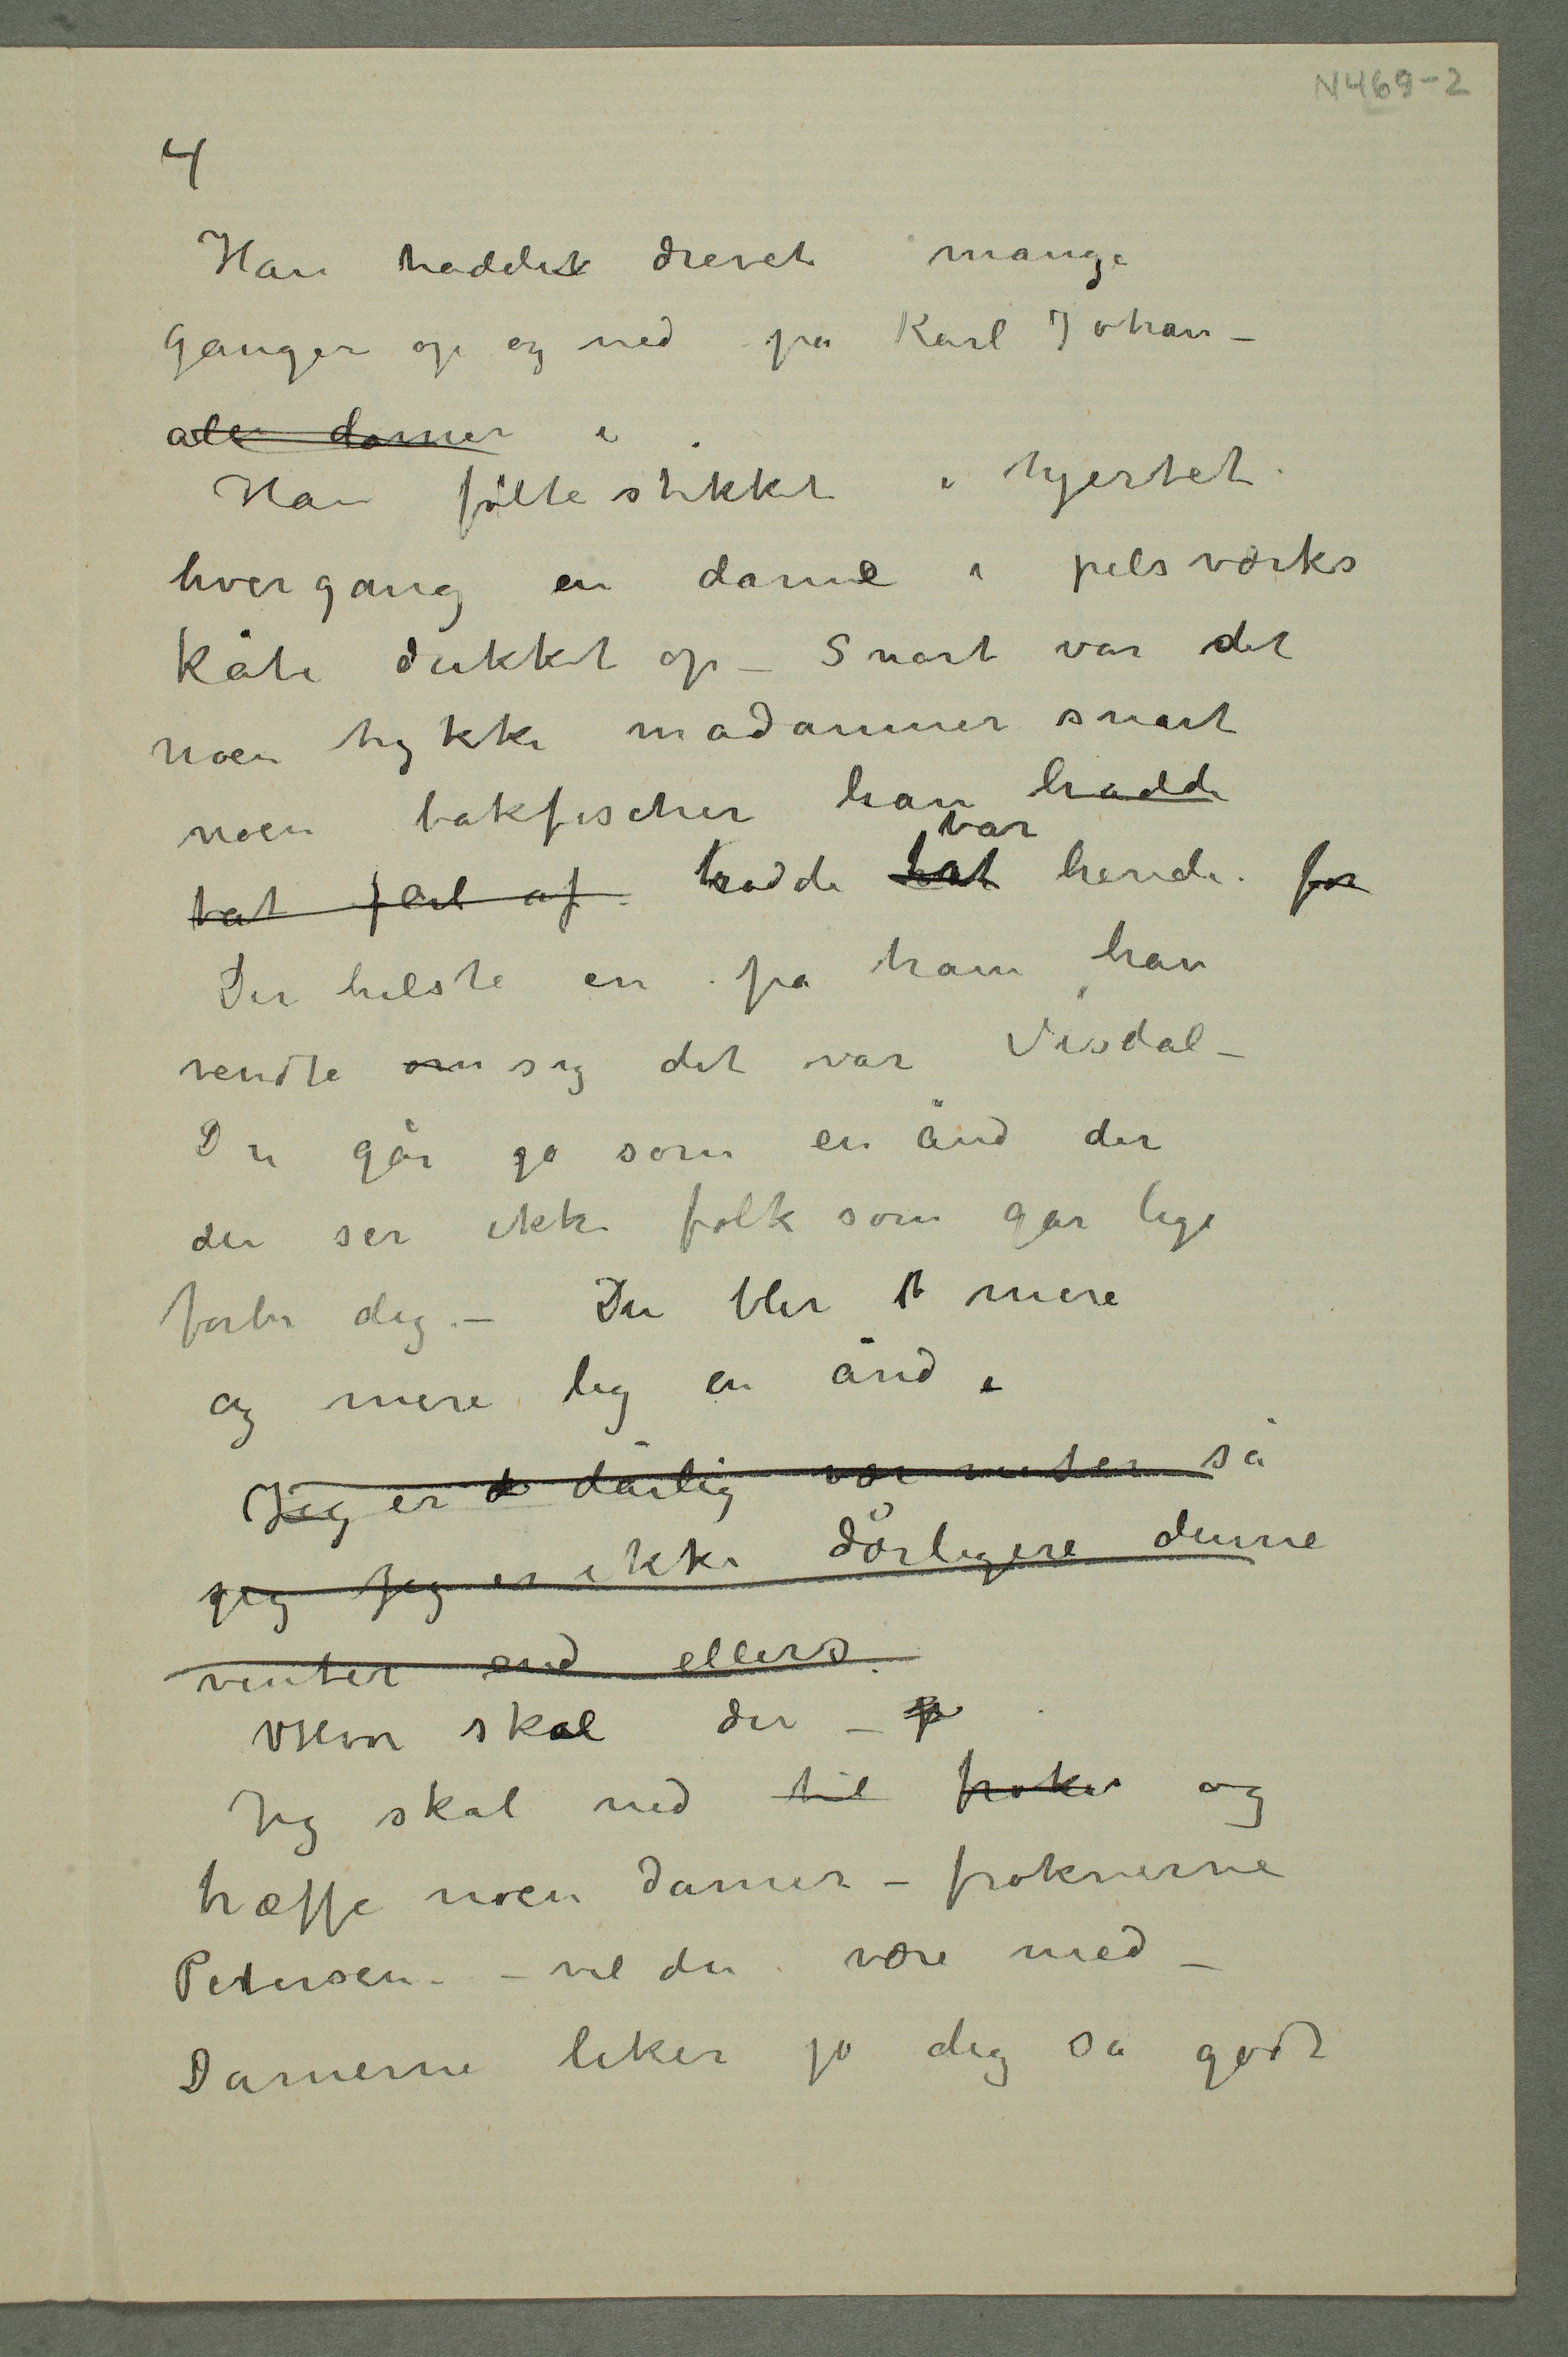 N469-2
4
Han hadde drevet mange
ganger op og ned på Karl Johan –
alle damer i
Han følte stikket i hjertet
hvergang en dame i pelsværks
kåbe dukket op – Snart var det
noen tykke madammer snart
noen bakfischer han hadde
var
tat feil af trodde hende. for
Der hilste en på ham han
vendte om sig det var Visdal –
Du går jo som en ånd der
du ser ikke folk som går lige
forbi dig. – Du blir mere
og mere lig en ånd.
Jeg er dårlig vær vinter så
jeg Jeg er ikke dårligere denne
vinter end ellers.
Hvor skal du –
Jeg skal ned til frøken og
træffe noen damer – frøknerne
Petersen – vil du være med –
Damerne liker jo dig så godt